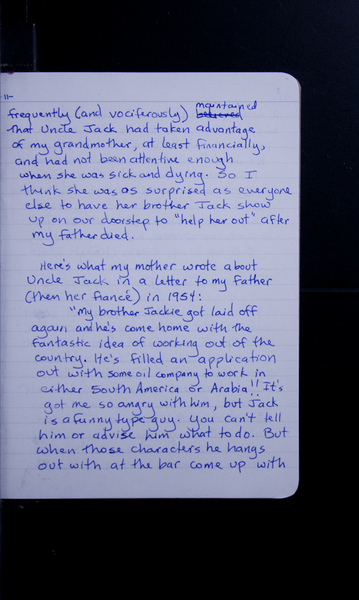 11-
frequently (and vociferously) maintained believed
that Uncle Jack had taken advantage
of my grandmother, at least financially,
and had not been attentive enough
when she was sick and dying. So I
think she was as surprised as everyone
else to have her brother Jack show
up on our doorstep to "help her out" after
my father died.
Here's what my mother wrote about
Uncle Jack in a letter to my father
(then her fiancé) in 1954:
"My brother Jackie got laid off
again and he's come home with the
fantastic idea of working out of the
country. He's filled an application
out with some oil company to work in
either South America or Arabia!! It's
got me so angry with him, but Jack
is a funny type guy. You can't tell
him or advise him what to do. But
when those characters he hangs
out with at the bar come up with